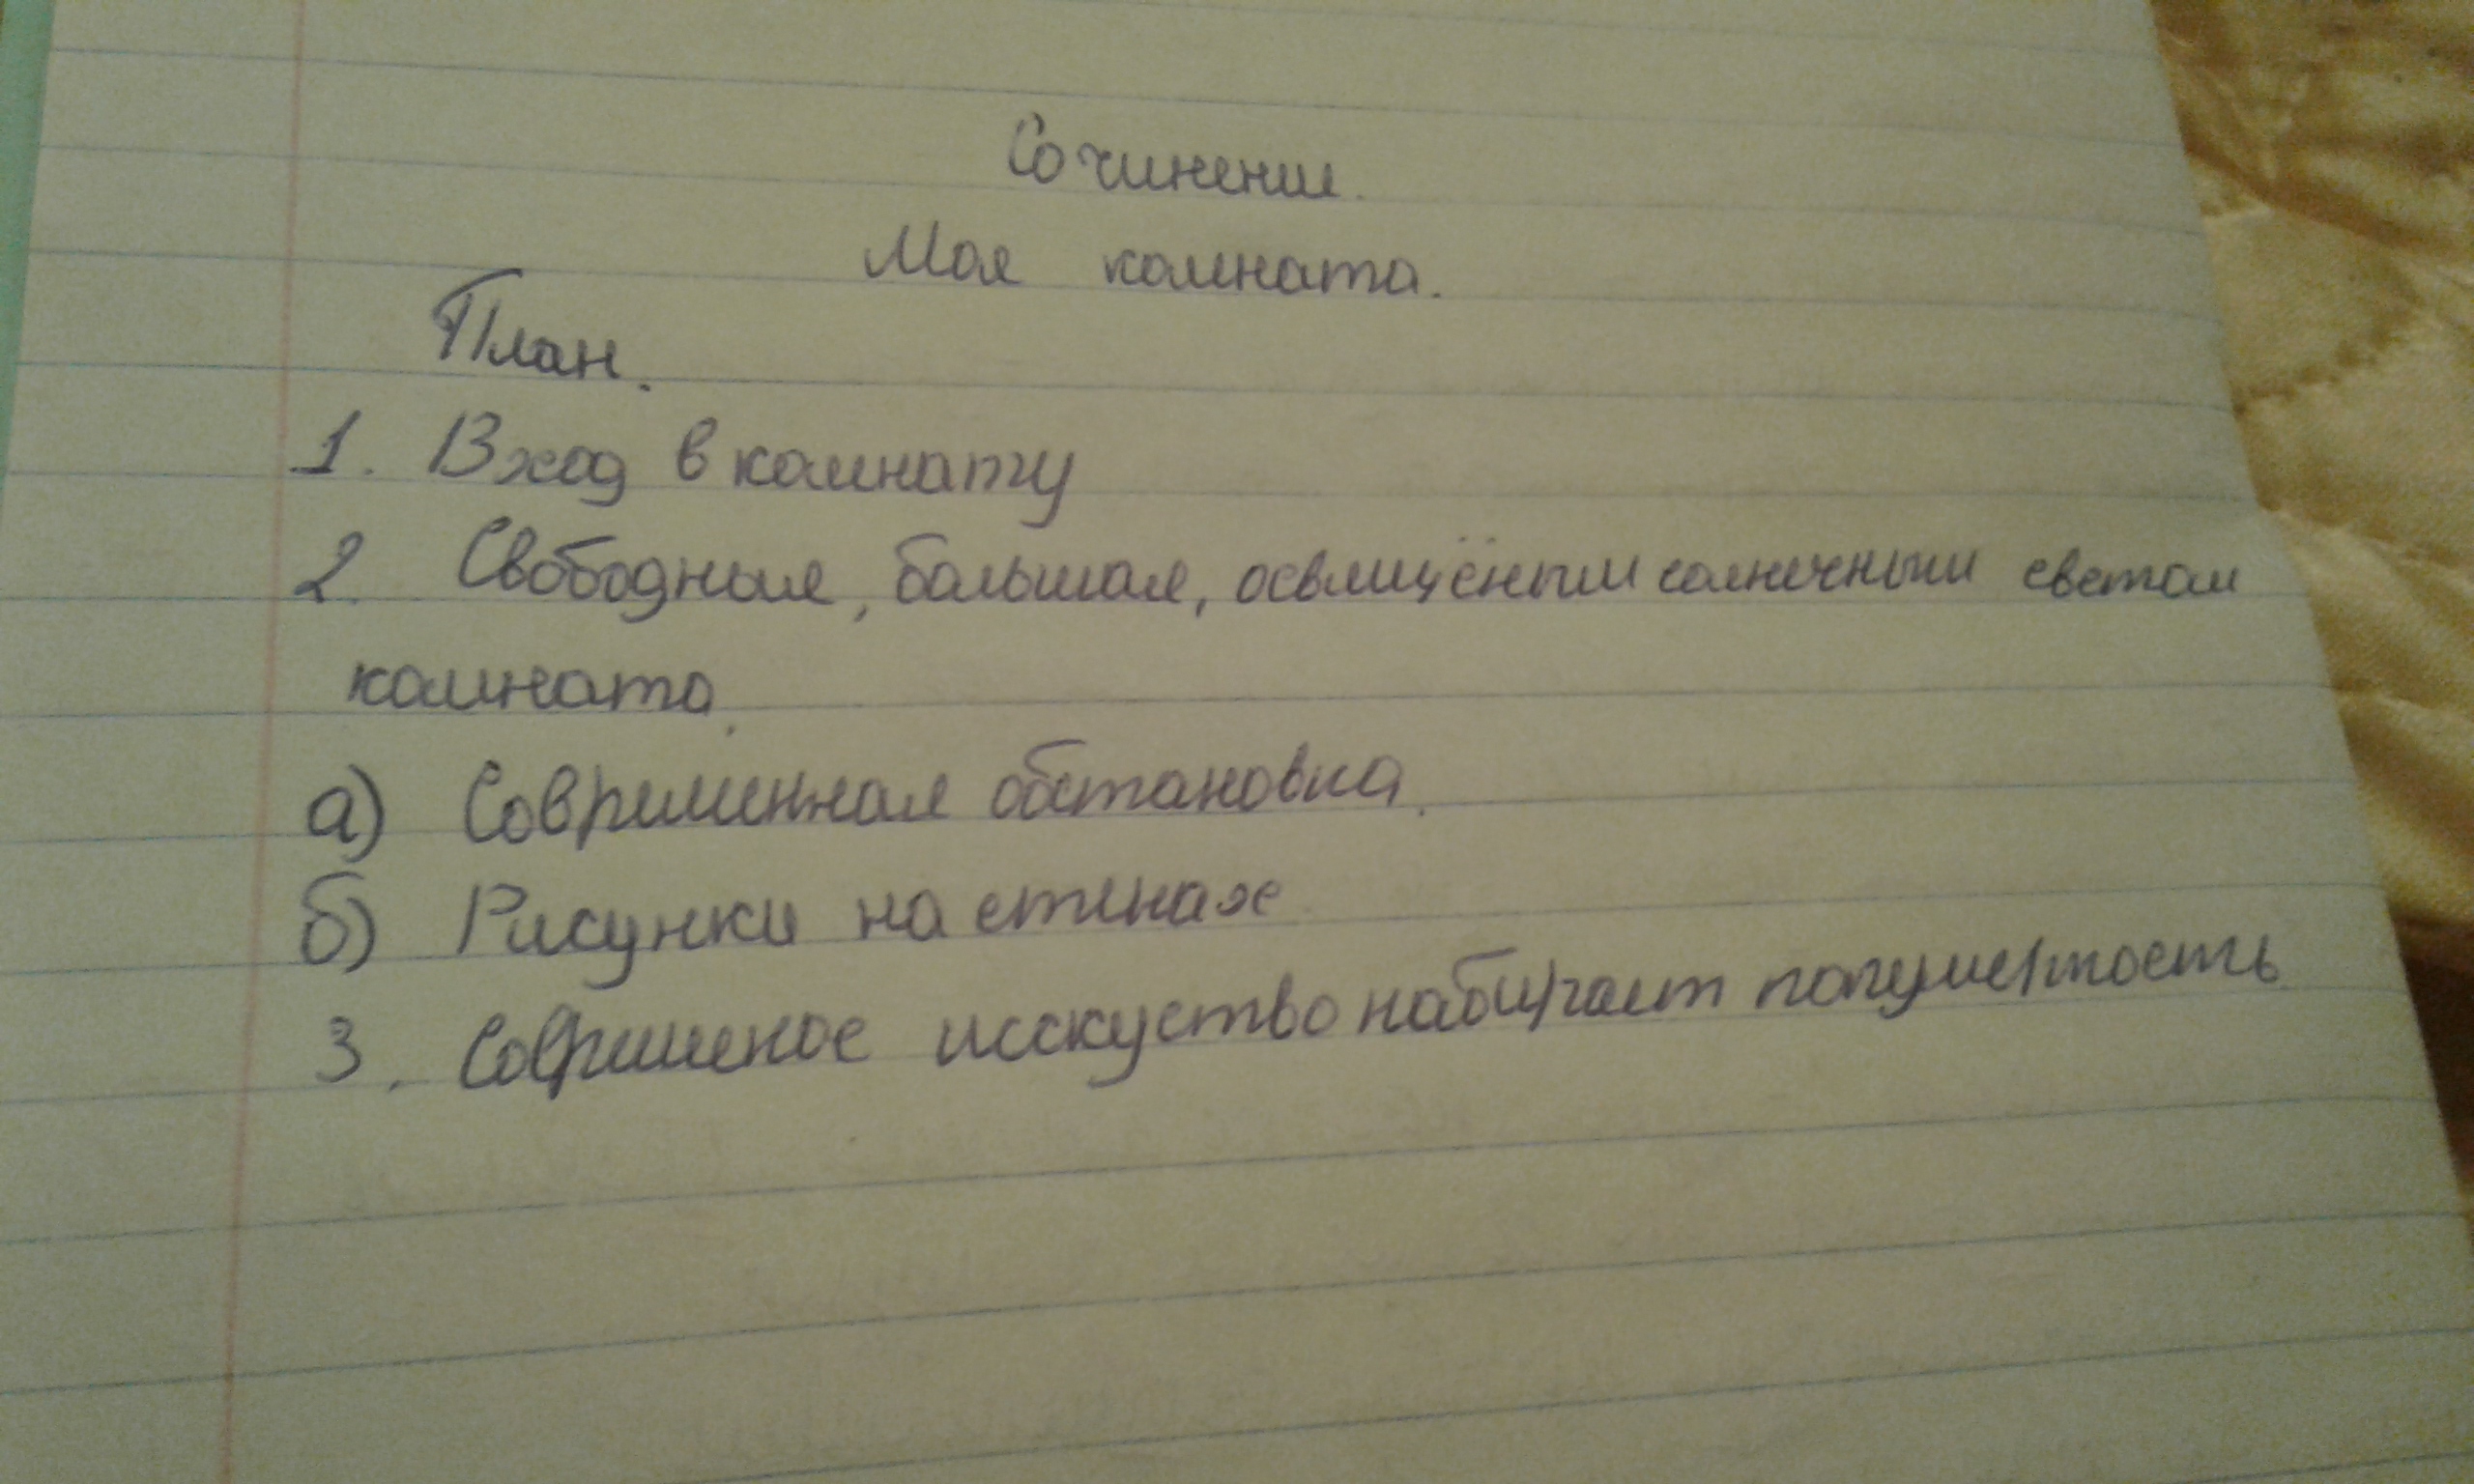 Сочинение.
Моя комната.
План.
1. Вход в комнату
2. Свободныя, большая, освещёным солнечным светом
комната.
а) Современная обстановка.
б) Рисунки на стенах
3. Современое исскуство набирает